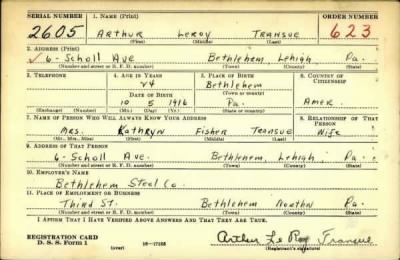 SERIAL NUMBER 1. NAME (Print) ORDER NUMBER
2605 Arthur Leroy Transue 623
(First) (Middle) (Last)
2. ADDRESS (Print)
6- Scholl Ave Bethlehem, Lehigh Pa.
(Number and street or R. F. D. number) (Town) (County) (State)
3. TELEPHONE 4. AGE IN YEARS 5. PLACE OF BIRTH 6. COUNTRY OF CITIZENSHIP
24 Bethlehem
DATE OF BIRTH (Town or county)
10 5 1916 Pa. Amer.
(Exchange) (Number) (Mo.) (Day) (Yr.) (State or country)
7. NAME OF PERSON WHO WILL ALWAYS KNOW YOUR ADDRESS 8. RELATIONSHIP OF THAT PERSON
Mrs. Kathryn Fisher Transue Wife
(Mr., Mrs., Miss) (First) (Middle) (Last)
9. ADDRESS OF THAT PERSON
6- Scholl Ave. Bethlehem, Lehigh Pa.
(Number and street or R. F. D. number) (Town) (County) (State)
10. EMPLOYER'S NAME
Bethlehem Steel Co.
11. PLACE OF EMPLOYMENT OR BUSINESS
Third St. Bethlehem Northn Pa
(Number and street or R. F. D. number) (Town) (County) (State)
I AFFIRM THAT I HAVE VERIFIED ABOVE ANSWERS AND THAT THEY ARE TRUE.
REGISTRATION CARD
D. S. S. Form 1 (over) 16-17105 Arthur Le Roy Transue
(Registrant's signature)